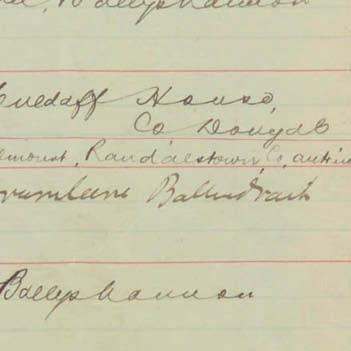 Ballyshannon
House,
Co Donegal
Randalstown, Co, antrim
Drumbeene Ballindrait
Ballyshannon